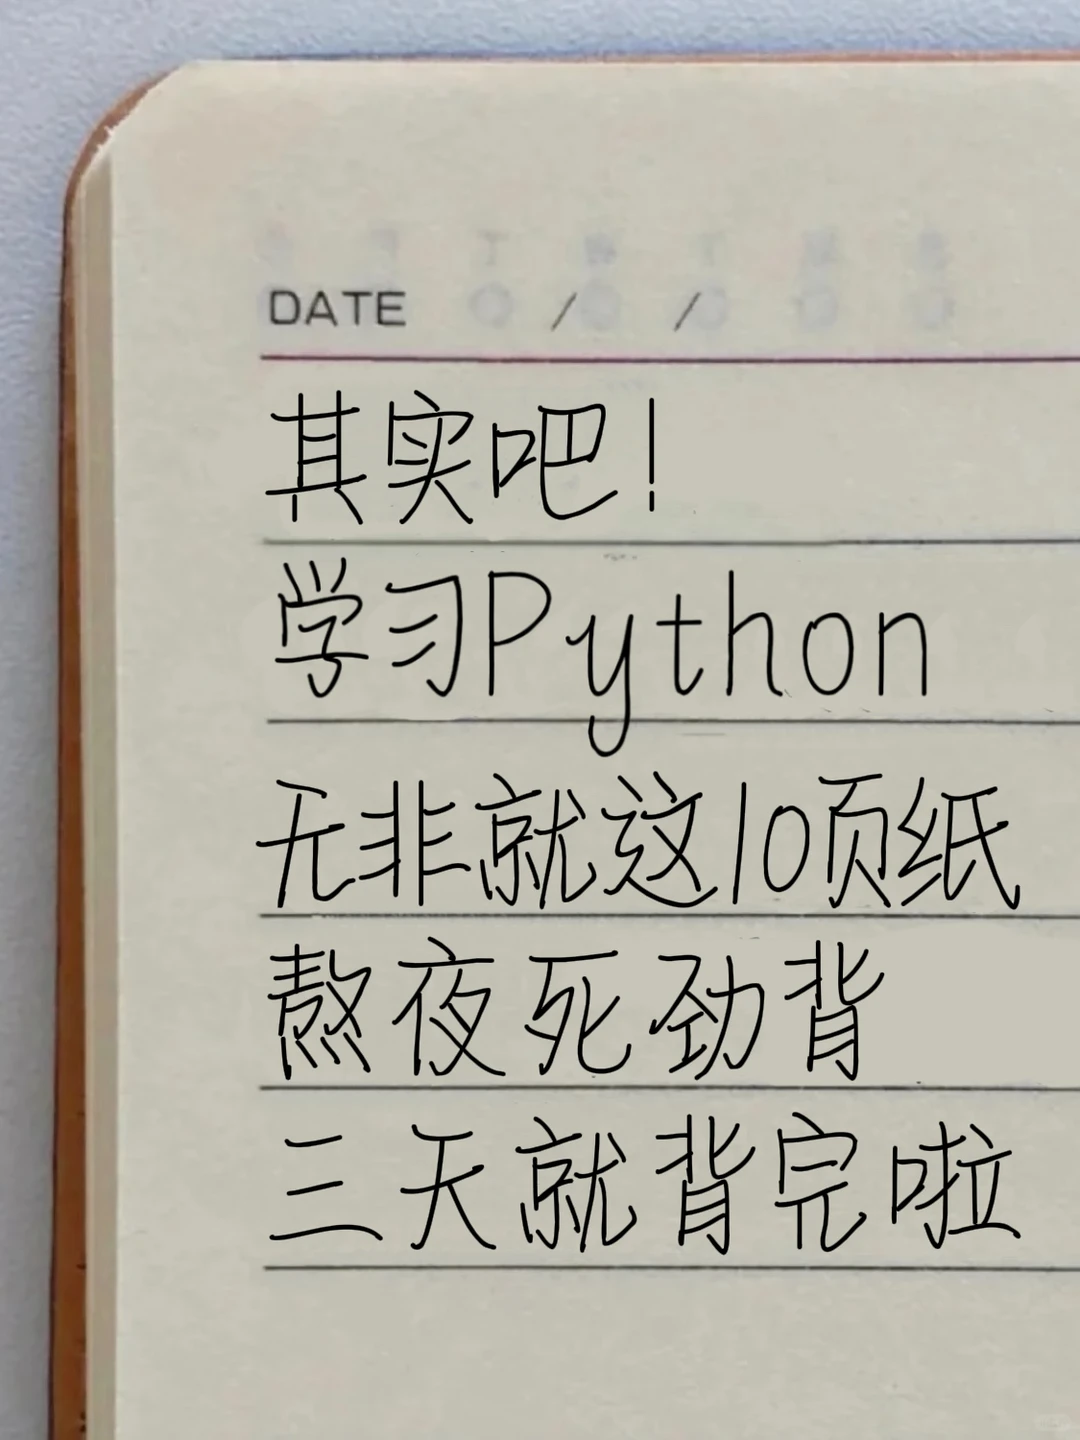 DATE / /
其实吧！
学习Python
无非就这10页纸
熬夜死劲背
三天就背完啦